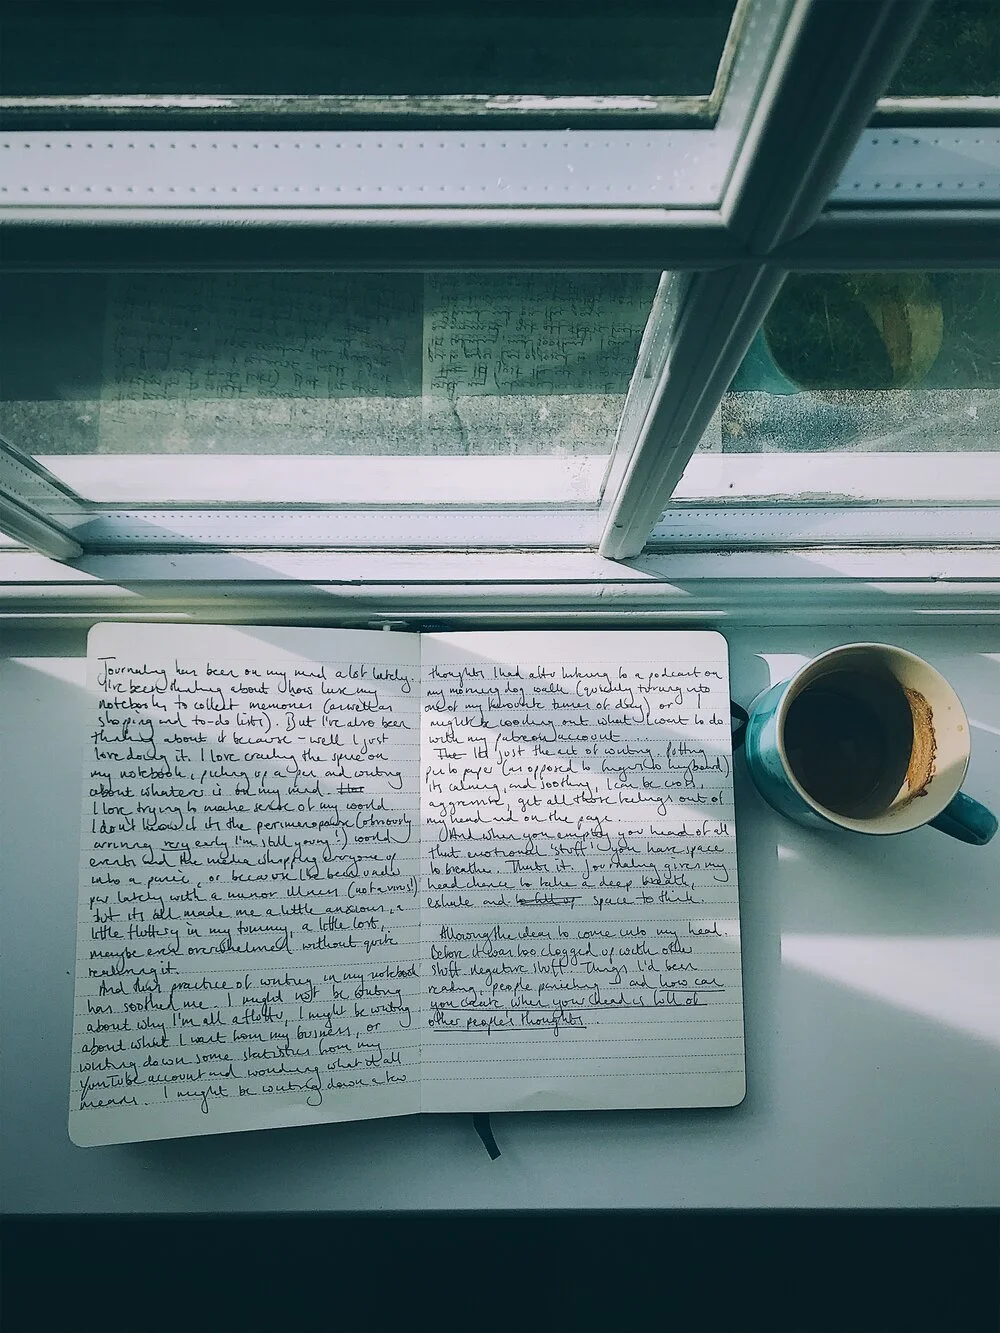 Journaling has been on my mind a lot lately.
I've been thinking about how I use my
notebooks to collect memories (as well as
shopping and to-do lists). But I've also been
thinking about it because - well I just
love doing it. I love cracking the spine on
my notebook, picking up a pen and writing
about whatever is on my mind.
I love trying to make sense of my world.
I don't know if it's the perimenopause (obviously
arriving very early I'm still young!) world
events and the media whipping everyone up
into a panic, or because I've been under
par lately with a minor illness (not a virus!)
but it's all made me a little anxious, a
little fluttery in my tummy, a little lost,
maybe even overwhelmed without quite
realising it.
And this practice of writing in my notebook
has soothed me. I might not be writing
about why I'm all aflutter, I might be writing
about what I want from my business, or
writing down some statistics from my
YouTube account and wondering what it all
means. I might be writing down a few
thoughts I had after listening to a podcast on
my morning dog walk (quickly turning into
one of my favourite times of day) or
might be working out what I want to do
with my patreon account...
It's just the act of writing. Putting
pen to paper (as opposed to fingers to keyboard)
it's calming, and soothing, I can be cross,
aggressive, get all those feelings out of
my head and on the page.
And when you empty your head of all
that emotional 'stuff' you have space
to breathe. That's it. Journaling gives my
head chance to take a deep breath,
exhale and space to think.
Allowing the ideas to come into my head.
Before it was too clogged up with other
stuff, negative stuff. Things I'd been
reading, people panicking - and how can
you create when your head is full of
other people's thoughts.